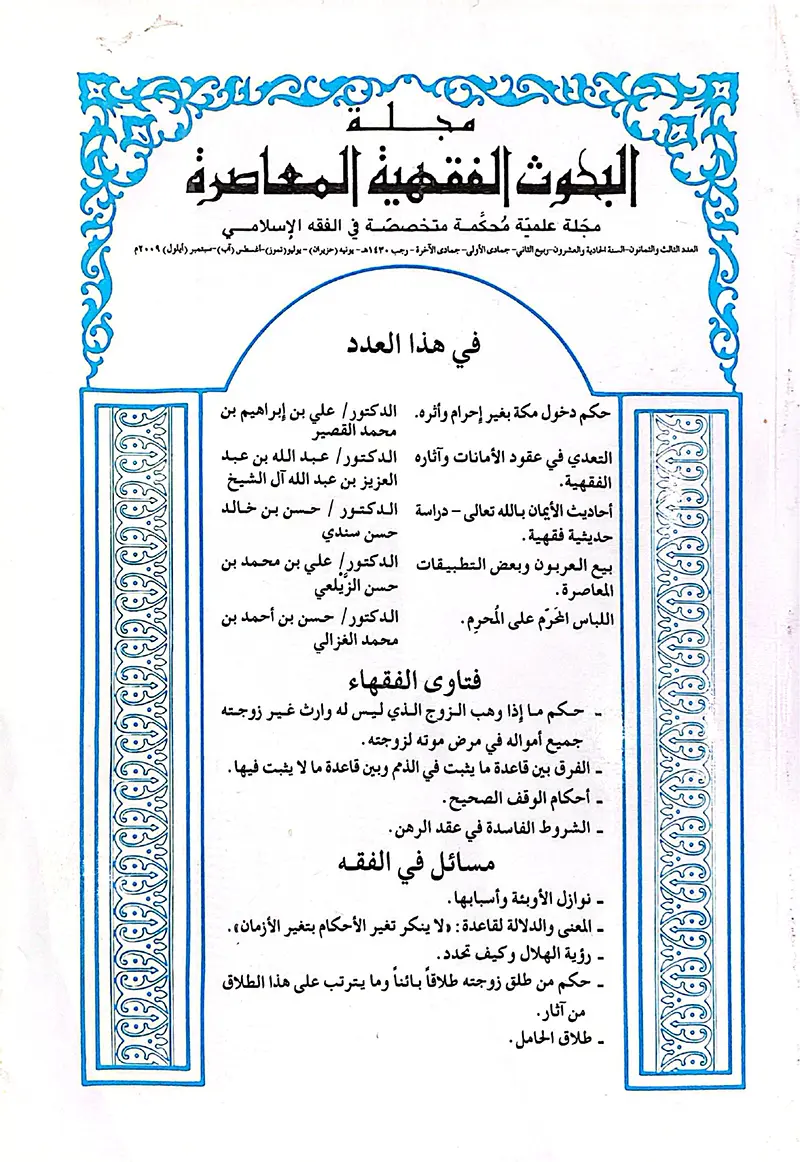 مجلة
البحوث الفقهية المعاصرة
مجلة علمية مُحكَّمة متخصصة في الفقه الإسلامي
العدد الثالث والثمانون-السنة الحادية والعشرون-ربيع الثاني- جمادى الأولى- جمادى الآخرة - رجب ١٤٣٠هـ- يونيه (حزيران) - يوليو (تموز)-أغسطس (آب)-سبتمبر (أيلول) ٢٠٠٩م
في هذا العدد
حكم دخول مكة بغير إحرام وأثره. الدكتور/ علي بن إبراهيم بن
محمد القصير
التعدي في عقود الأمانات وآثاره الدكتور/ عبد الله بن عبد
الفقهية. العزيز بن عبد الله آل الشيخ
أحاديث الأيمان بالله تعالى - دراسة الدكتور / حسن بن خالد
حديثية فقهية. حسن سندي
بيع العربون وبعض التطبيقات الدكتور/ علي بن محمد بن
المعاصرة. حسن الزَّيلعي
اللباس المحَرّم على المُحرِم. الدكتور/ حسن بن أحمد بن
محمد الغزالي
فتاوى الفقهاء
- حكم ما إذا وهب الزوج الذي ليس له وارث غير زوجته
جميع أمواله في مرض موته لزوجته.
- الفرق بين قاعدة ما يثبت في الذمم وبين قاعدة ما لا يثبت فيها.
- أحكام الوقف الصحيح.
- الشروط الفاسدة في عقد الرهن.
مسائل في الفقه
- نوازل الأوبئة وأسبابها.
- المعنى والدلالة لقاعدة: «لا ينكر تغير الأحكام بتغير الأزمان».
- رؤية الهلال وكيف تحدد.
- حكم من طلق زوجته طلاقاً بائناً وما يترتب على هذا الطلاق
من آثار.
- طلاق الحامل.